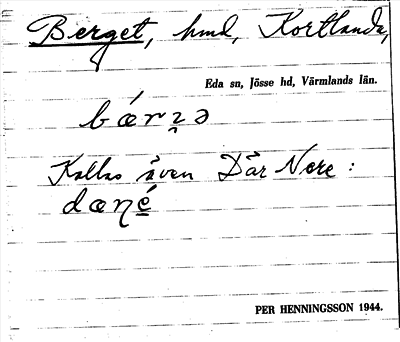 Berget, hmd, Kortlanda,
Eda sn, Jösse hd, Värmlands län.
bǽrz̨ə
Kallas även Där Nere :
dæŋé
PER HENNINGSSON 1944.